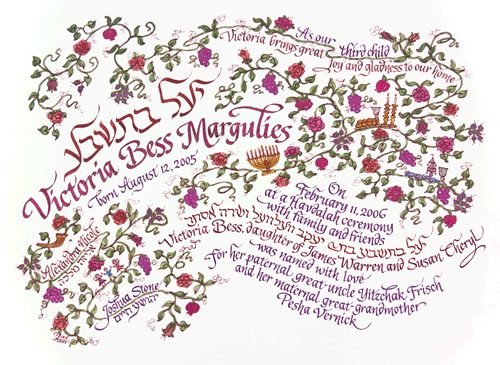 As our third child
Victoria brings great joy and gladness to our home
יעל בתשבע
Victoria Bess Margulies
Born August 12, 2005
On
February 11, 2006
at a Havdalah ceremony
with family and friends
יעל בתשבע בת יעקב ושרה אסתר
Victoria Bess, daughter of James Warren and Susan Cheryl
was named with love
For her paternal great-uncle Yitzchak Frisch
and her maternal great-grandmother
Pesha Vernick
Alexandra Nicole
Joshua Stone
יהושע חיים